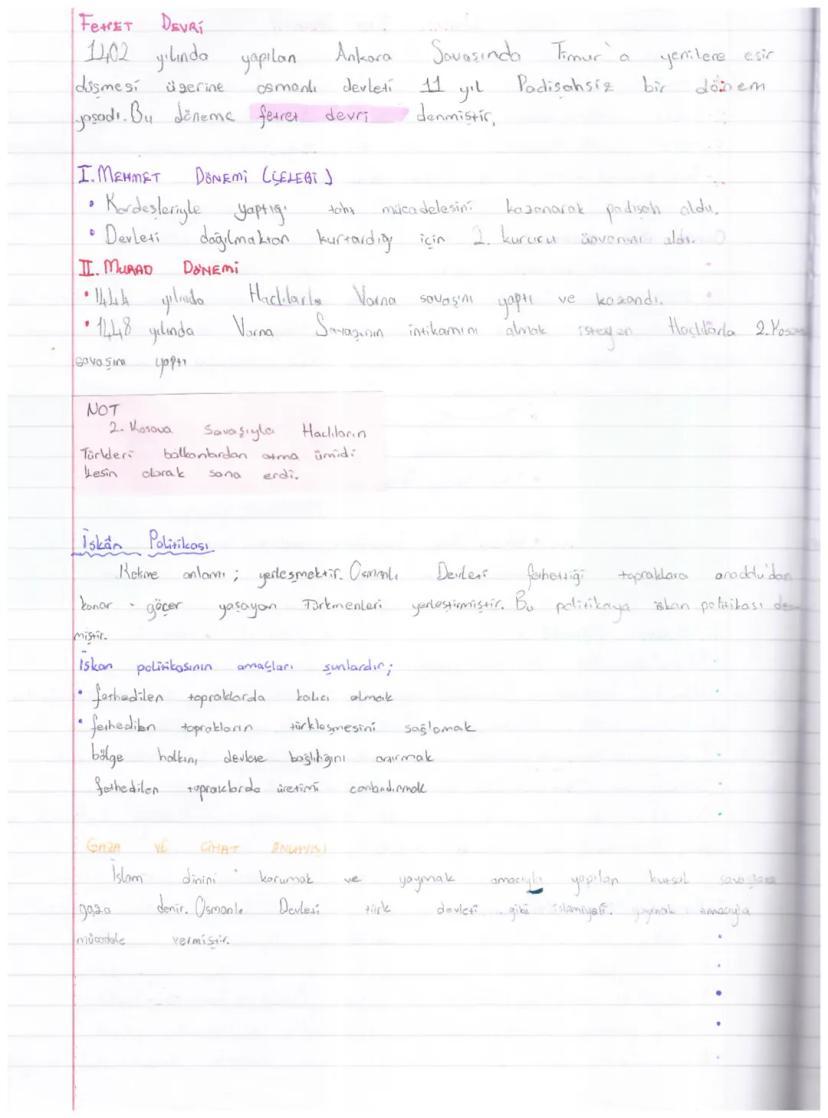 FETRET DEVRİ
1402 yılında yapılan Ankara Savaşında Timur'a yenilere esir
düşmesi üzerine osmanlı devleti 11 yıl Padişahsiz bir dönem
yaşadı. Bu döneme fetret devri denmiştir.
I. MEHMET DÖNEMİ (ÇELEBİ)
• Kardeşleriyle yaptığı taht mücadelesini kazanarak padişah oldu.
• Devleti dağılmaktan kurtardığı için 2. kurucu ünvanını aldı.
II. MURAD DÖNEMİ
• 1444 yılında Haçlılarla Varna savaşını yaptı ve kazandı.
• 1448 yılında Varna Savaşının intikamını almak isteyen Haçlılarla 2. Kosova
savaşını yaptı
NOT
2. Kosova Savaşıyla Haçlıların
Türkleri balkanlardan atma ümidi
kesin olarak sona erdi.
İskân Politikası
Kelime anlamı; yerleşmektir. Osmanlı Devleti fethettiği topraklara anadolu'dan
konar - göçer yaşayan Türkmenleri yerleştirmiştir. Bu politikaya iskan politikası den
miştir.
İskan politikasının amaçları şunlardır;
• fethedilen topraklarda kalıcı olmak
• fethedilen toprakların türkleşmesini sağlamak
bölge halkını devlete bağlılığını artırmak
fethedilen topraklarda üretimi canlandırmak
GAZA VE CİHAT ANLAYIŞI
İslam dinini korumak ve yaymak amacıyla yapılan kutsal savaşlara
gaza denir. Osmanlı Devleti türk devleti gibi islamiyeti yaymak amacıyla
mücadele vermiştir.